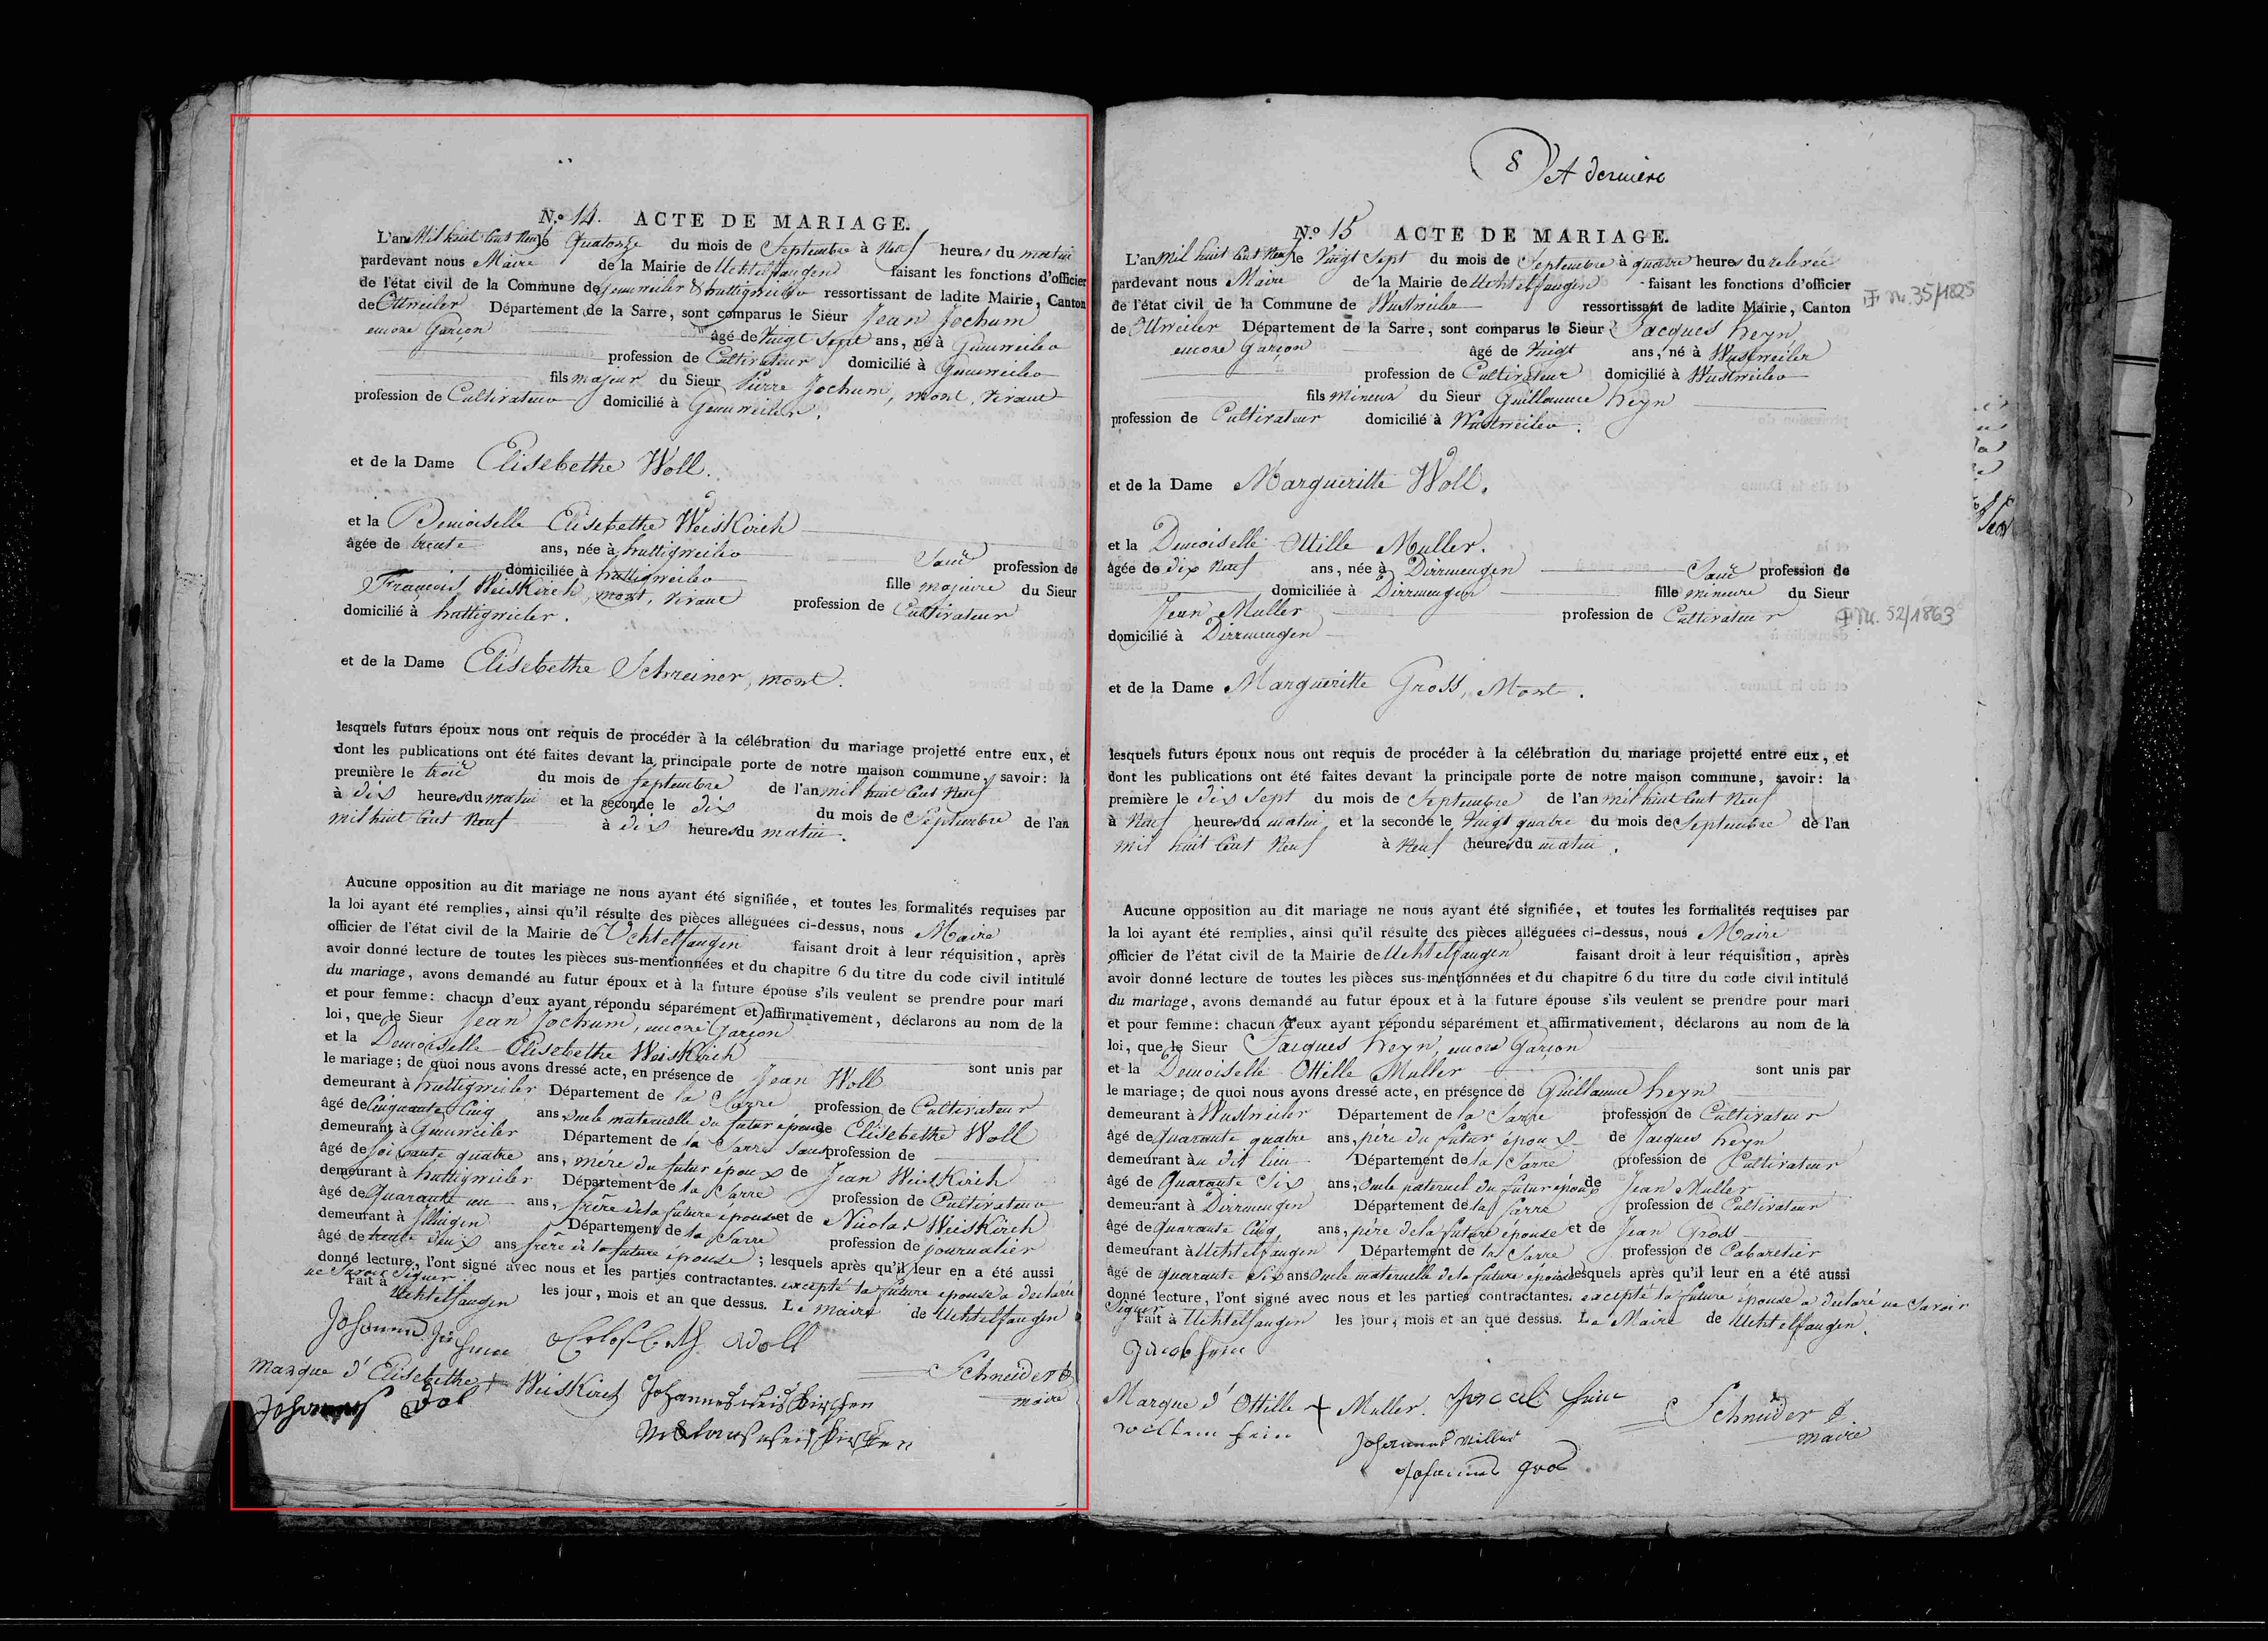 N.o 14. ACTE DE MARIAGE.
L'an Mil huit Cent Neuf le Quatorze du mois de Septembre à Neuf heures du matin
pardevant nous Maire de la Mairie de Uchtelfangen faisant les fonctions d'officier
de l'état civil de la Commune de Gennweiler & huttigweiler ressortissant de ladite Mairie, Canton
de Ottweiler Département de la Sarre, sont comparus le Sieur Jean Jochum
encore Garçon âgé de Vingt Sept ans, né à Gennweiler
profession de Cultivateur domicilié à Gennweiler
fils majeur du Sieur Pierre Jochum, mort, vivant
profession de Cultivateur domicilié à Gennweiler.
et de la Dame Elisebethe Woll.
et la Demoiselle Elisebethe Weiskirch
âgée de trente ans, née à huttigweiler Sans profession de
domiciliée à huttigweiler fille majeure du Sieur
François Weiskirch, mort, vivant profession de Cultivateur
domicilié à huttigwieler.
et de la Dame Elisebethe Schreiner, mort.
lesquels futurs époux nous ont requis de procéder à la célébration du mariage projetté entre eux, et
dont les publications ont été faites devant la principale porte de notre maison commune, savoir: la
première le trois du mois de Septembre de l'an mil huit Cent Neuf
à dix heures du matin et la seconde le dix du mois de Septembre de l'an
mil huit Cent Neuf à dix heures du matin.
Aucune opposition au dit mariage ne nous ayant été signifiée, et toutes les formalités requises par
la loi ayant été remplies, ainsi qu'il résulte des pièces alléguées ci-dessus, nous Maire
officier de l'état civil de la Mairie de Uchtelfangen faisant droit à leur réquisition, après
avoir donné lecture de toutes les pièces sus-mentionnées et du chapitre 6 du titre du code civil intitulé
du mariage, avons demandé au futur époux et à la future épouse s'ils veulent se prendre pour mari
et pour femme: chacun d'eux ayant répondu séparément et affirmativement, déclarons au nom de la
loi, que le Sieur Jean Jochum, encore Garçon
et la Demoiselle Elisebethe Weiskirch sont unis par
le mariage; de quoi nous avons dressé acte, en présence de Jean Woll
demeurant à huttigweiler Département de la Sarre profession de Cultivateur
âgé de Cinquante Cinq ans, oncle maternelle du futur époux de Elisebethe Woll
demeurant à Gennweiler Département de la Sarre Sans profession de
âgé de Soixante quatre ans, mére du futur époux de Jean Weiskirch
demeurant à huttigwieler Département de la Sarre profession de Cultivateur
âgé de Quarante un ans, frère de la future épouse et de Nicolas Weiskirch
demeurant à Illingen Département de la Sarre profession de journalier
âgé de trente deux ans frère de la future épouse; lesquels après qu'il leur en a été aussi
donné lecture, l'ont signé avec nous et les parties contractantes. excepté la future épouse a déclaré
ne Savoir Signer.
Fait à Uchtelfangen les jour, mois et an que dessus. Le maire de Uchtelfangen
Johannes Jochum Elisabeth Woll
Marque d'Elisebethe + Weiskirch Johannes weiskirchen Schneider
maire
Johannes Wol
Niclaus weiskirchen
8 et dernière
N.o 15 ACTE DE MARIAGE.
L'an mil huit Cent Neuf le Vingt Sept du mois de Septembre à quatre heures du relevée
pardevant nous Maire de la Mairie de Uchtelfangen faisant les fonctions d'officier
de l'état civil de la Commune de Wustweiler ressortissant de ladite Mairie, Canton
de Ottweiler Département de la Sarre, sont comparus le Sieur Jacques heyn
Nr. 35/1825
encore Garçon âgé de Vingt ans, né à Wustweiler
profession de Cultivateur domicilié à Wustweiler
fils Mineur du Sieur Guillaume heyn
profession de Cultivateur domicilié à Wustweiler.
et de la Dame Margueritte Woll.
et la Demoiselle Ottille Muller.
âgée de dix Neuf ans, née à Dirrmengen Sans profession de
domiciliée à Dirrmengen fille mineure du Sieur
Jean Muller profession de Cultivateur
Nr. 52/1863
domicilié à Dirrmengen
et de la Dame Margueritte Gross, Mort.
lesquels futurs époux nous ont requis de procéder à la célébration du mariage projetté entre eux, et
dont les publications ont été faites devant la principale porte de notre maison commune, savoir: la
première le dix Sept du mois de Septembre de l'an mil huit Cent Neuf
à Neuf heures du matin et la seconde le Vingt quatre du mois de Septembre de l'an
mil huit Cent Neuf à Neuf heures du matin.
Aucune opposition au dit mariage ne nous ayant été signifiée, et toutes les formalités requises par
la loi ayant été remplies, ainsi qu'il résulte des pièces alléguées ci-dessus, nous Maire
officier de l'état civil de la Mairie de Uchtelfangen faisant droit à leur réquisition, après
avoir donné lecture de toutes les pièces sus-mentionnées et du chapitre 6 du titre du code civil intitulé
du mariage, avons demandé au futur époux et à la future épouse s'ils veulent se prendre pour mari
et pour femme: chacun d'eux ayant répondu séparément et affirmativement, déclarons au nom de la
loi, que le Sieur Jacques heyn, encore Garçon
et la Demoiselle Ottille Muller sont unis par
le mariage; de quoi nous avons dressé acte, en présence de Guillaume heyn
demeurant à Wustweiler Département de la Sarre profession de Cultivateur
âgé de Quarante quatre ans, pére du futur époux de Jacques heyn
demeurant au dit lieu Département de la Sarre profession de Cultivateur
âgé de Quarante Six ans, Oncle paternel du futur époux de Jean Muller
demeurant à Dirrmengen Département de la Sarre profession de Cultivateur
âgé de quarante Cinq ans, pére de la future épouse et de Jean Gross
demeurant à Uchtelfangen Département de la Sarre profession de Cabaretier
âgé de quarante Six ans Oncle maternelle de la future épouse lesquels après qu'il leur en a été aussi
donné lecture, l'ont signé avec nous et les parties contractantes. excepté la future épouse a déclaré ne Savoir
Signer
Fait à Uchtelfangen les jour, mois et an que dessus. Le Maire de Uchtelfangen.
Jacob hein
Marque d'Ottille + Muller. Jacob hein Schneider
maire
wilhem hein Johannes Miller
Johannes gros